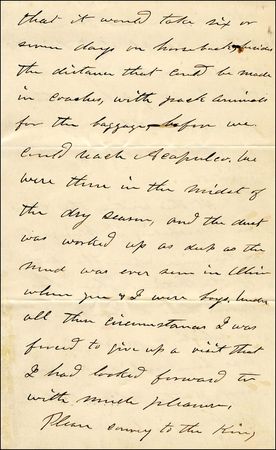 that it would take six or
seven days on horseback, besides
the distance that could be made
in coaches, with pack animals
for the baggage, before we
could reach Acapulco. We
were then in the midst of
the dry season, and the dust
was worked up as deep as the
mud was ever seen in Ohio
when you & I were boys. Under
all these circumstances I was
forced to give up a visit that
I had looked forward to
with much pleasure.
Please convey to the King,